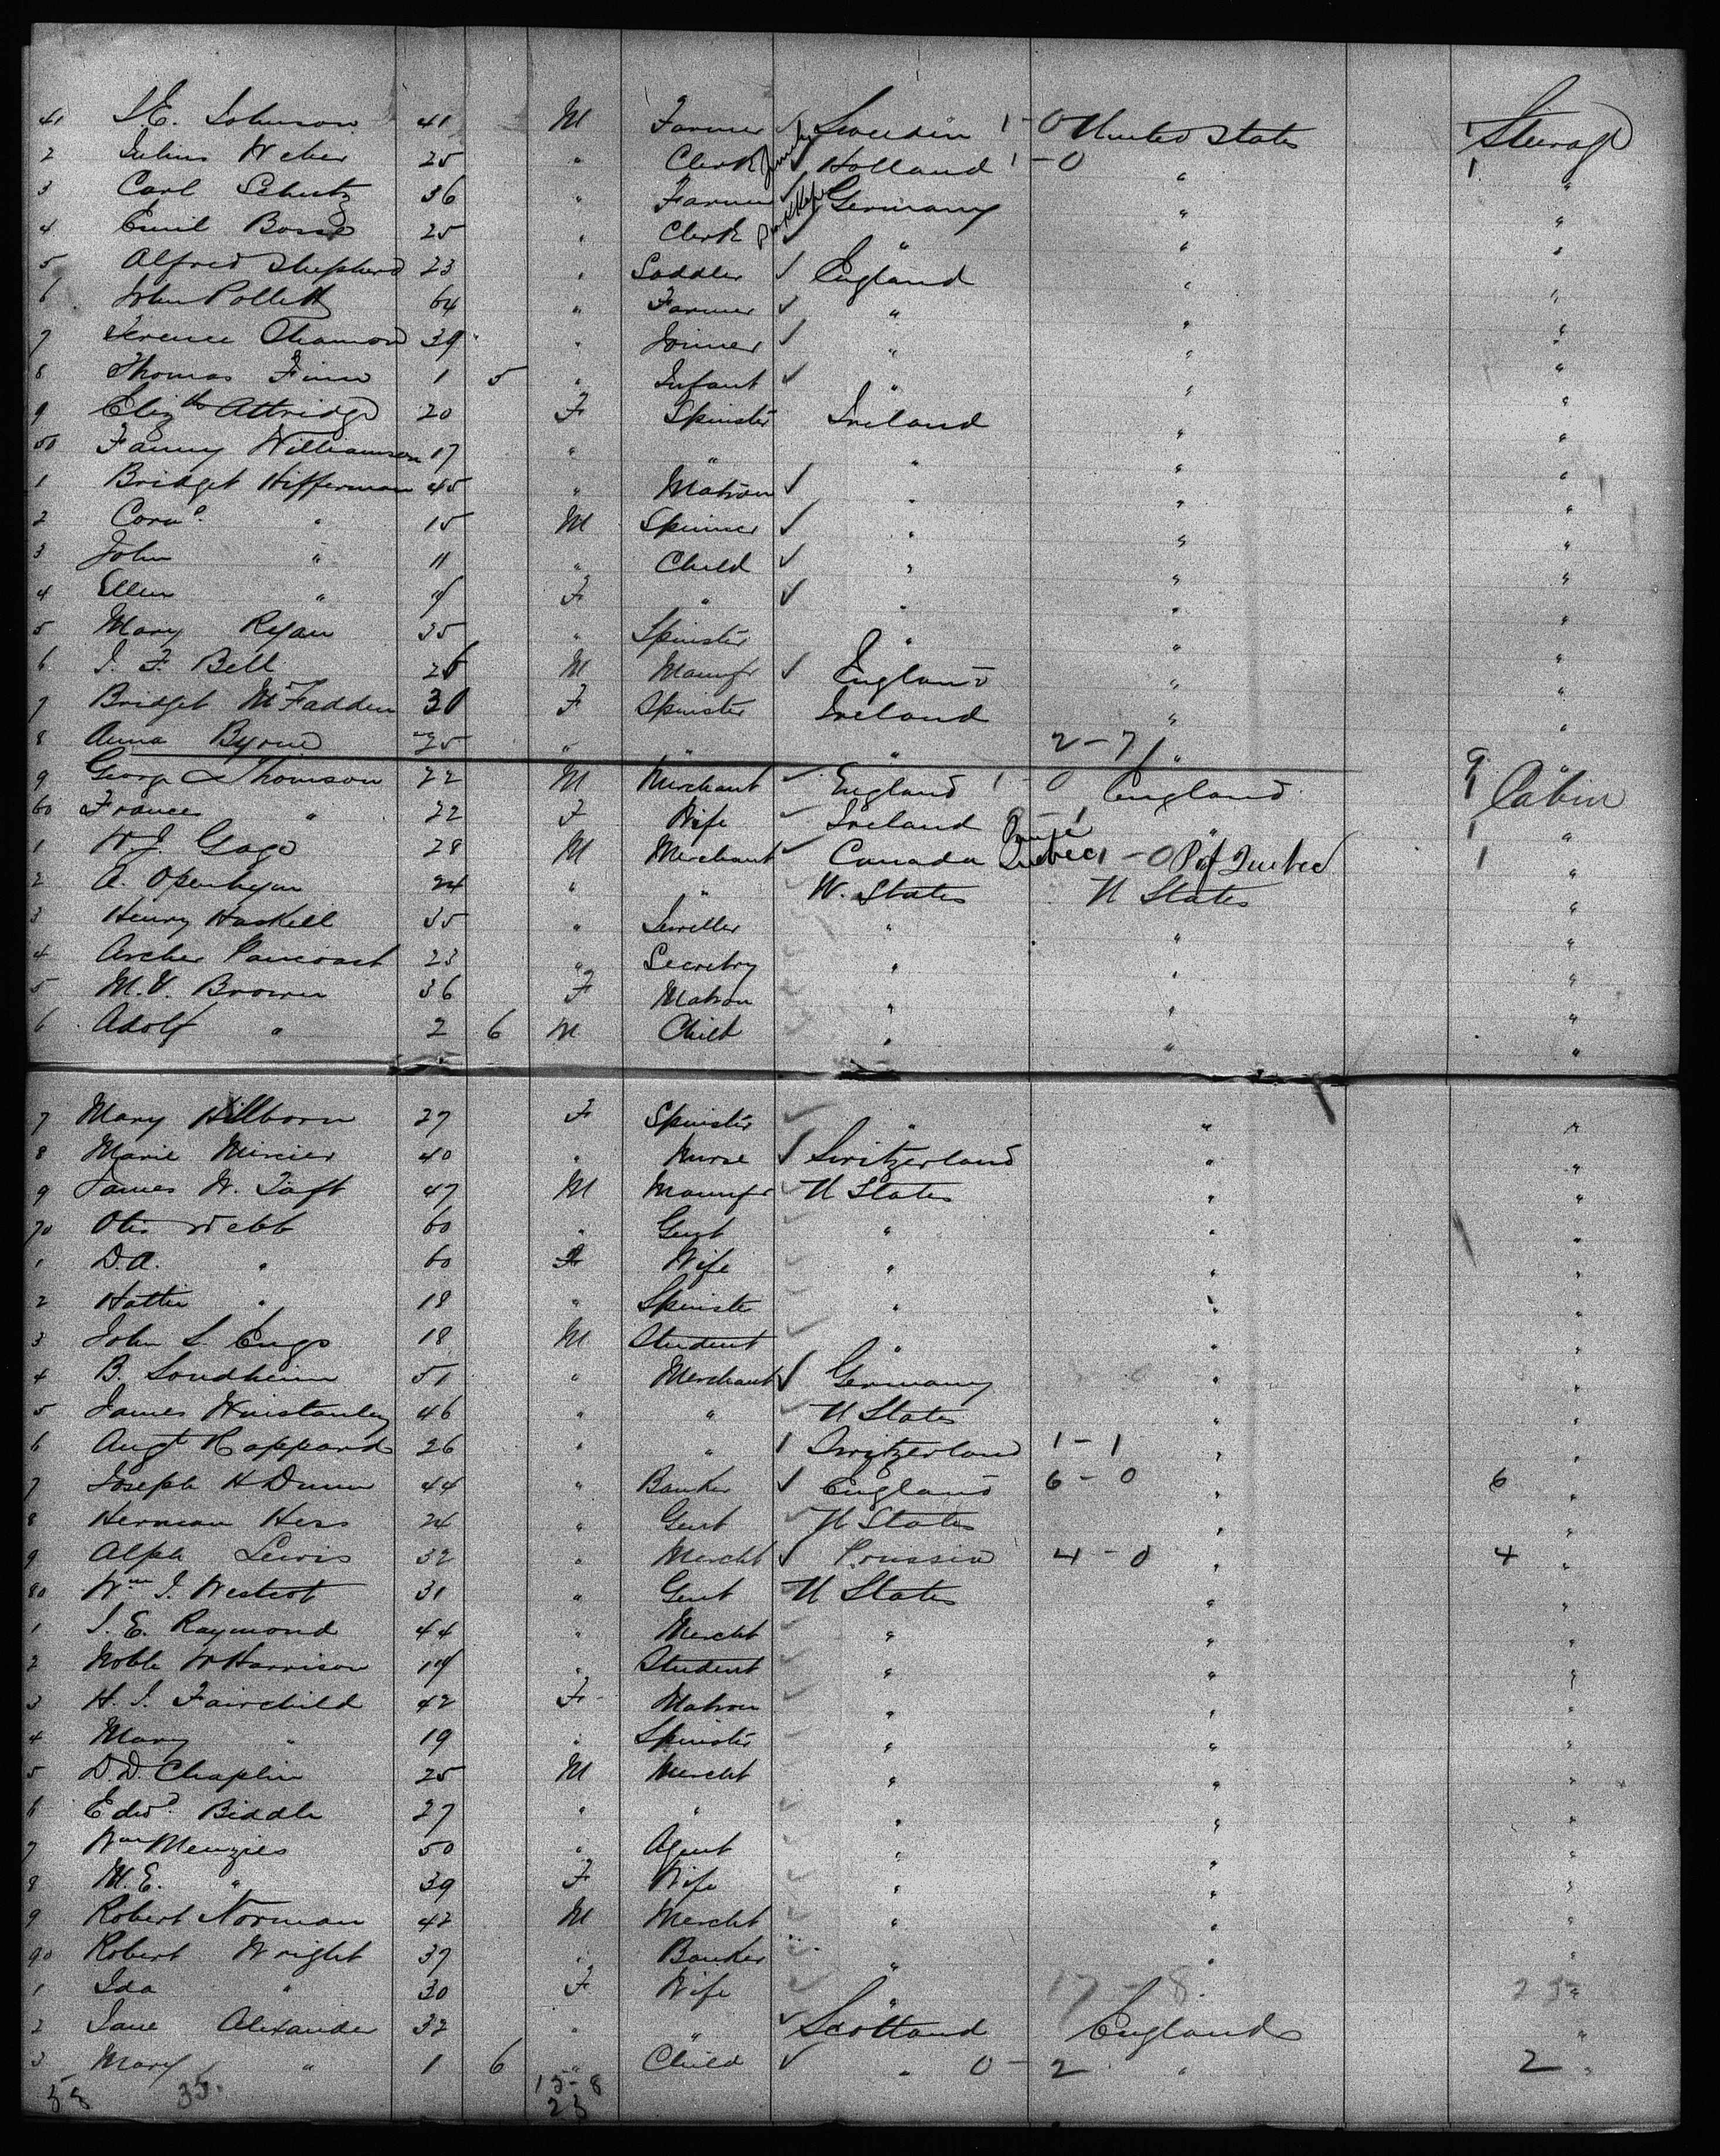 41 S.E. Johnson 41 M Farmer ✓ Sweden 1 - 0 United States 1 Steerage
2 Julius Weber 25 " Clerk ✓ Holland 1 - 0 " 1 "
3 Carl Schutz 36 " Farmer ✓ Germany " "
4 Emil Bosse 25 " Clerk ✓ " " "
5 Alfred Shepherd 23 " Saddler ✓ England " "
6 John Pollett 64 " Farmer ✓ " " "
7 Terence 39 " Joiner ✓ " " "
8 Thomas Finn 1 5 " Infant ✓ " " "
9 Elizth Attridge 20 F Spinster Ireland " "
50 Fanny Williamson 17 " " " " "
1 Bridget Hifferman 45 " Matron ✓ " " "
2 " 15 M Spinner ✓ " " "
3 John " 11 " Child ✓ " " "
4 Ellen " 9 F " ✓ " " "
5 Mary Ryan 35 " Spinster " " "
6 J. F. Bell 26 M Manufr ✓ England " "
7 Bridget McFadden 30 F Spinster Ireland " "
8 Anna Byrne 25 " " " 2 - 7 " 9 "
9 George Thomson 22 M Merchant ✓ England 1 - 0 England 1 Cabin
60 Frances " 22 F Wife ✓ Ireland 0 - 1 " 1 "
1 W.J. Gage 28 M Merchant ✓ Canada Quebec 1 - 0 P of Quebec 1 "
2 A. Openhym 24 " " U. States U States "
3 Henry Haskell 35 " Jeweller " " "
4 Archer Pancoast 23 " Secretry " " "
5 M.V. Brown 36 F Matron " " "
6 Adolf " 2 6 M Child " " "
7 Mary Hillborn 27 F Spinster ✓ " " "
8 Marie Mercier 40 " Nurse ✓ Switzerland " "
9 James W. Taft 47 M Manufr ✓ U States " "
70 Otis Webb 60 " Gent ✓ " " "
1 D.A. " 60 F Wife ✓ " " "
2 Hattie " 18 " Spinster ✓ " " "
3 John S. Engs 18 M Student ✓ " " "
4 B. Sondheim 51 " Merchant ✓ Germany " "
5 James Winstanley 46 " " ✓ U States " "
6 Augt Rappard 26 " " 1 Switzerland 1 - 1 " "
7 Joseph H Dunn 44 " Banker ✓ England 6 - 0 " 6 "
8 Herman Hess 24 " Gent ✓ U States " "
9 Alph Lewis 32 " Mercht ✓ Prussia 4 - 0 " 4 "
80 Wm J. Westcot 31 " Gent ✓ U States " "
1 J. E. Raymond 44 " Mercht ✓ " " "
2 Noble W Harrison 19 " Student ✓ " " "
3 H. S. Fairchild 42 F Matron ✓ " " "
4 Mary " 19 " Spinster ✓ " " "
5 D.D. Chaplin 25 M Mercht ✓ " " "
6 Edwd. Biddle 27 " " ✓ " " "
7 Wm Menzies 50 " Agent ✓ " " "
8 M. E. " 39 F Wife ✓ " " "
9 Robert Norman 42 M Mercht ✓ " " "
90 Robert Wright 37 " Banker ✓ " " "
1 Ida " 30 F Wife ✓ " 17 - 8 " 25 "
2 Jane Alexander 32 " " ✓ Scotland England "
3 Mary " 1 6 " Child ✓ " 0 - 2 " 2 "
58 35. 15 - 8
23